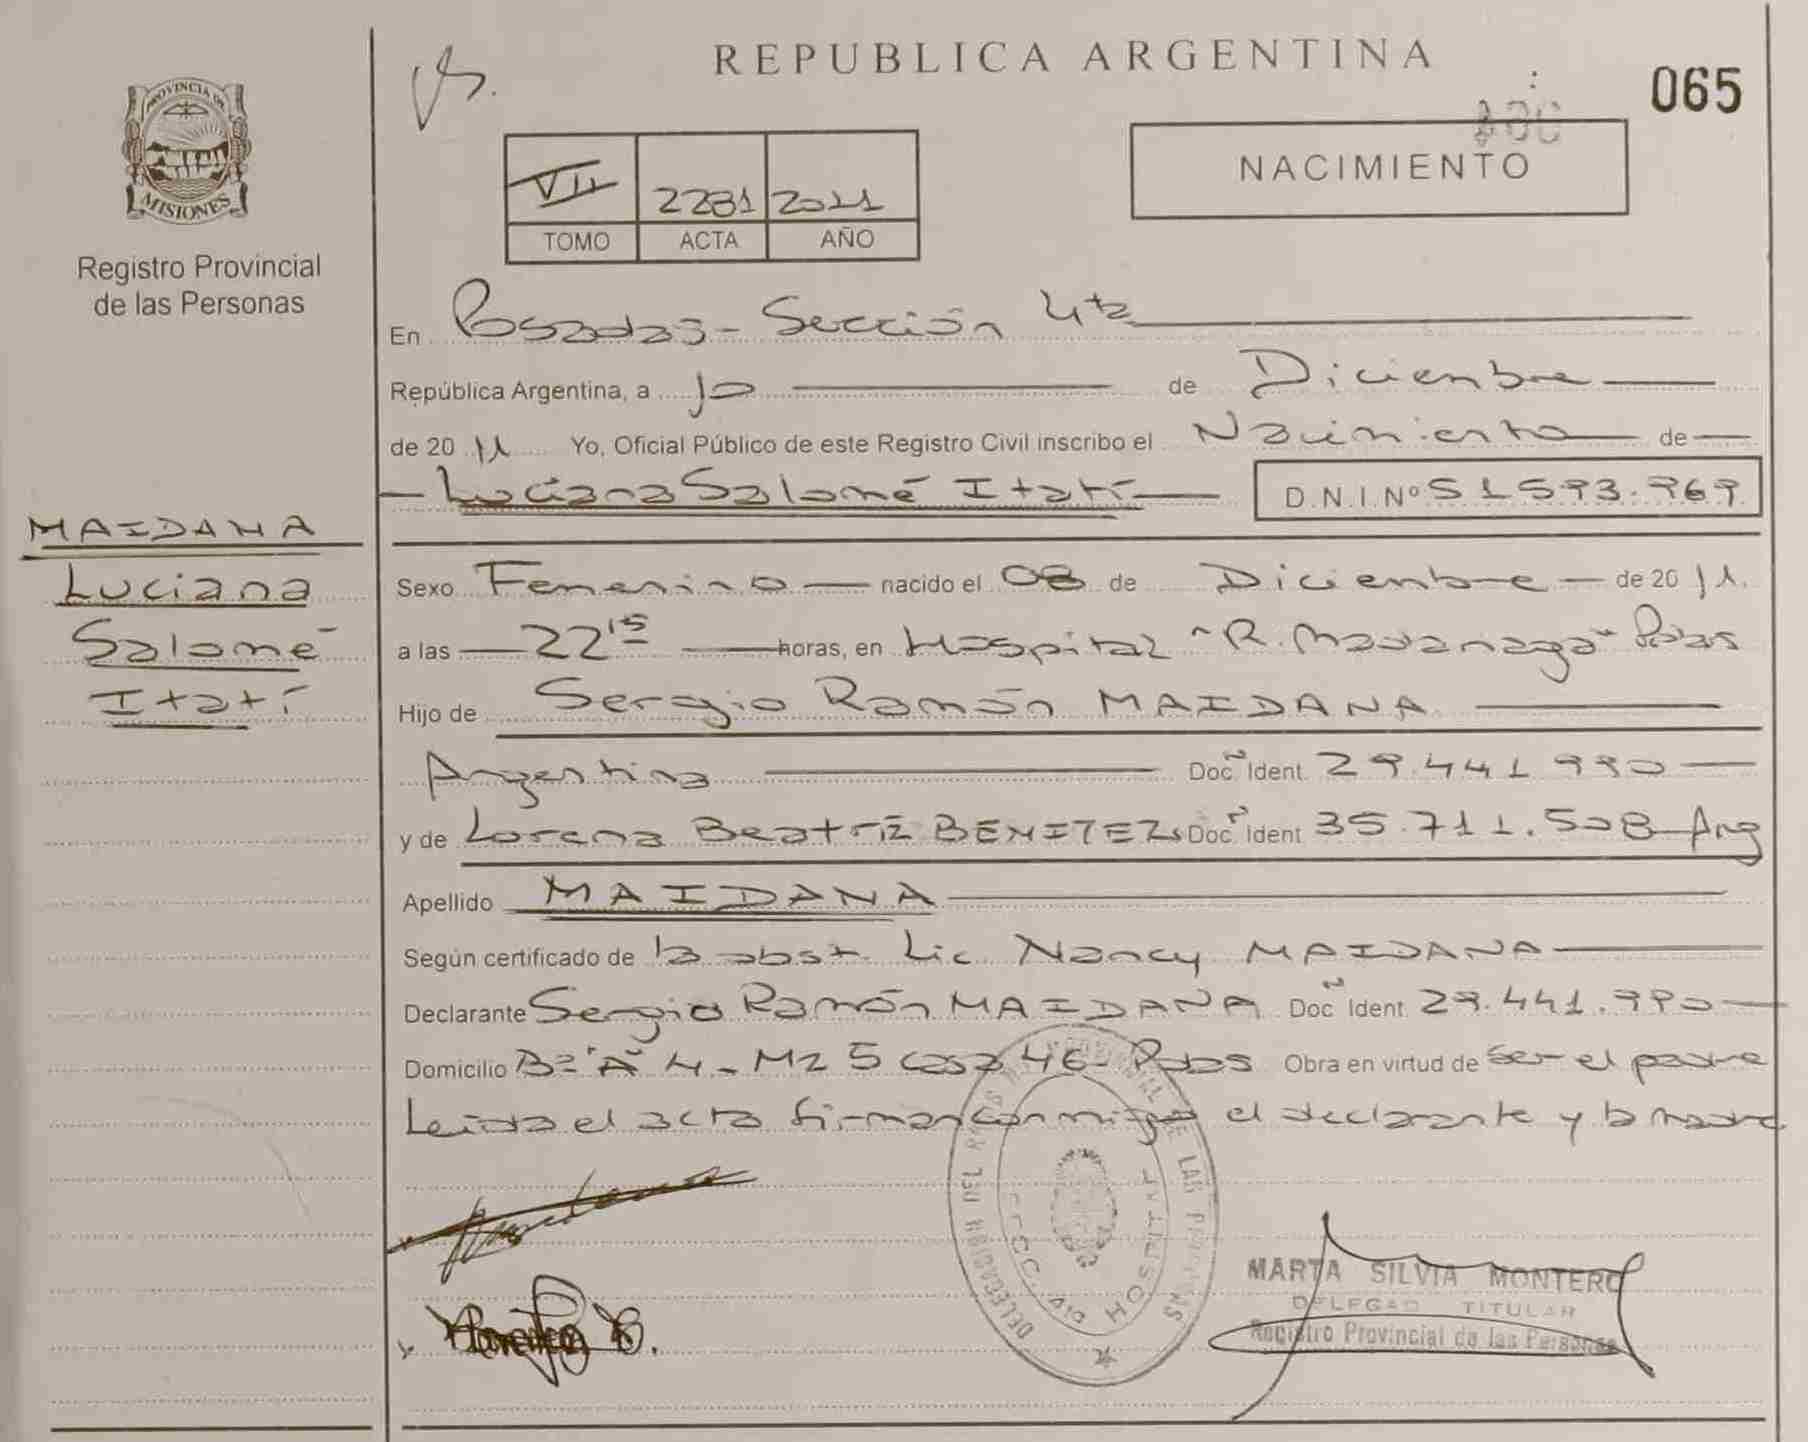 REPUBLICA ARGENTINA
065
PROVINCIA DE
MISIONES
Registro Provincial
de las Personas
VII 2281 2011
TOMO ACTA AÑO
NACIMIENTO
En Posadas - Sección 4ta
República Argentina, a 10 de Diciembre
de 2011 Yo, Oficial Público de este Registro Civil inscribo el Nacimiento de
Luciana Salomé Itatí D.N.I. Nº 51593.969
MAIDANA
Luciana
Salomé
Itatí
Sexo Femenino nacido el 08 de Diciembre de 2011.
a las 22 15 horas, en Hospital "R. Madariaga" Pdas
Hijo de Sergio Ramón MAIDANA
Argentina Doc. Ident. 29.441.990
y de Lorena Beatríz BENITEZ Doc. Ident 35.711.508 Arg
Apellido MAIDANA
Según certificado de la obst. Lic. Nancy MAIDANA
Declarante Sergio Ramón MAIDANA Doc. Ident. 29.441.990
Domicilio Bº "A" 4 - Mz 5 casa 46 - Pdas Obra en virtud de ser el padre
Leida el acta firman conmigo el declarante y la madre
DELEGACION DEL REGISTRO PROVINCIAL DE LAS PERSONAS
SECC. 4ta HOSPITAL
MARTA SILVIA MONTERO
DELEGAD TITULAR
Registro Provincial de las Personas